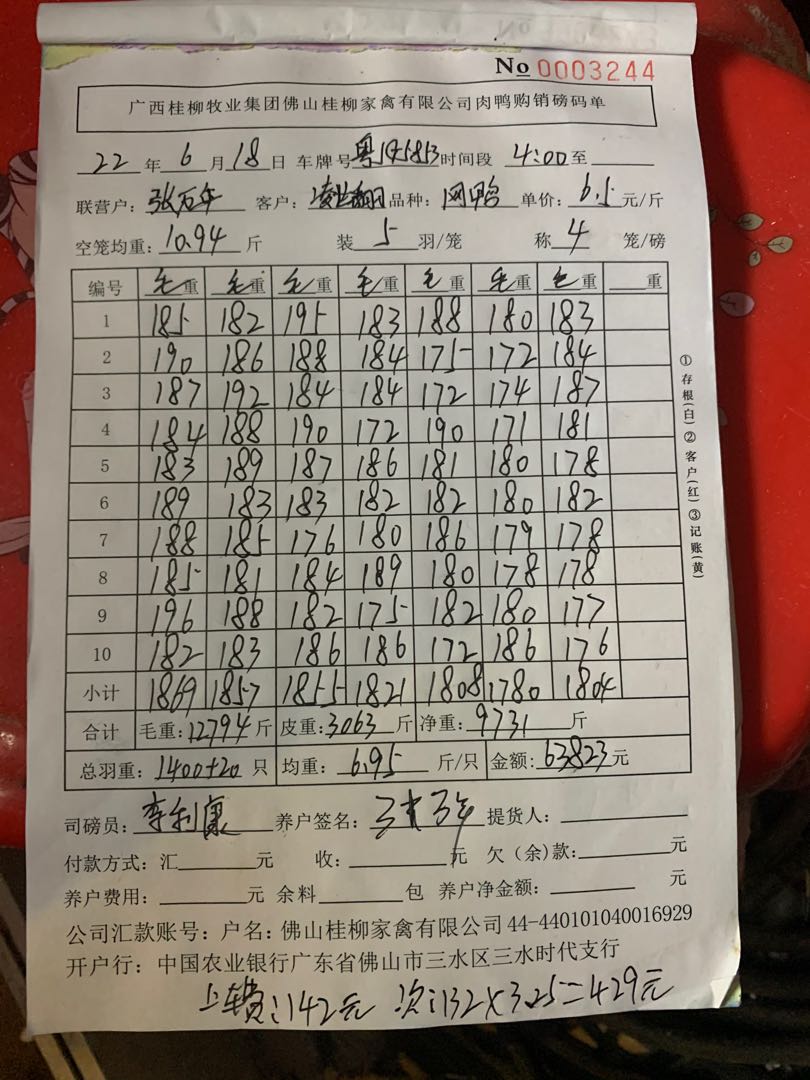 No 0003244
广西桂柳牧业集团佛山桂柳家禽有限公司肉鸭购销磅码单
22 年 6 月 18 日 车牌号 时间段 4:00 至
联营户: 张万年 客户: 品种: 单价: 6.5 元/斤
空笼均重: 10.94 斤 装 5 羽/笼 称 4 笼/磅
编号 毛重 毛重 毛重 毛重 毛重 毛重 毛重 重
1 185 182 195 183 188 180 183
2 190 186 188 184 175 172 184
3 187 192 184 184 172 174 187
4 184 188 190 172 190 171 181
5 183 189 187 186 181 180 178
6 189 183 183 182 182 180 182
7 188 185 176 180 186 179 178
8 185 181 184 189 180 178 178
9 196 188 182 175 182 180 177
10 182 183 186 186 172 186 176
小计 1869 1857 1855 1821 1808 1780 1804
合计 毛重: 12794 斤 皮重: 3063 斤 净重: 9731 斤
总羽重: 1400+20 只 均重: 6.95 斤/只 金额: 63823 元
司磅员: 李利康 养户签名: 提货人:
付款方式: 汇 元 收: 元 欠(余)款: 元
养户费用: 元 余料 包 养户净金额: 元
公司汇款账号: 户名: 佛山桂柳家禽有限公司 44-440101040016929
开户行: 中国农业银行广东省佛山市三水区三水时代支行
上车费: 142元 次: 132×3.25=429元
①存根(白)②客户(红)③记账(黄)